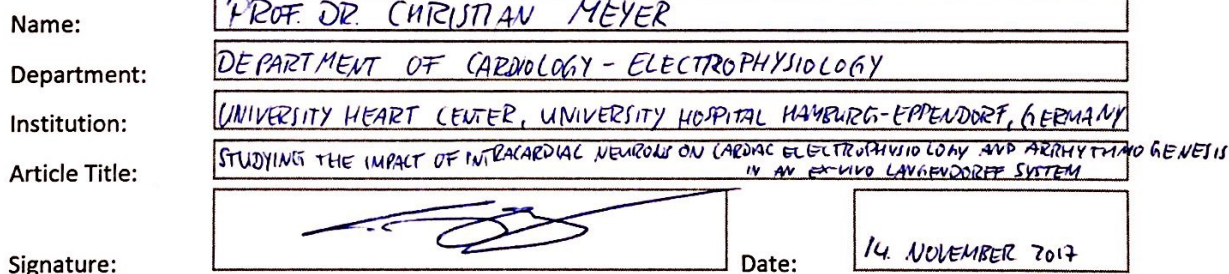 Name: PROF. DR. CHRISTIAN MEYER
Department: DEPARTMENT OF CARDIOLOGY - ELECTROPHYSIOLOGY
Institution: UNIVERSITY HEART CENTER, UNIVERSITY HOSPITAL HAMBURG-EPPENDORF, GERMANY
Article Title: STUDYING THE IMPACT OF INTRACARDIAC NEURONS ON CARDIAC ELECTROPHYSIOLOGY AND ARRHYTHMOGENESIS
IN AN EX-VIVO LANGENDORFF SYSTEM
Signature: Date: 14. NOVEMBER 2017